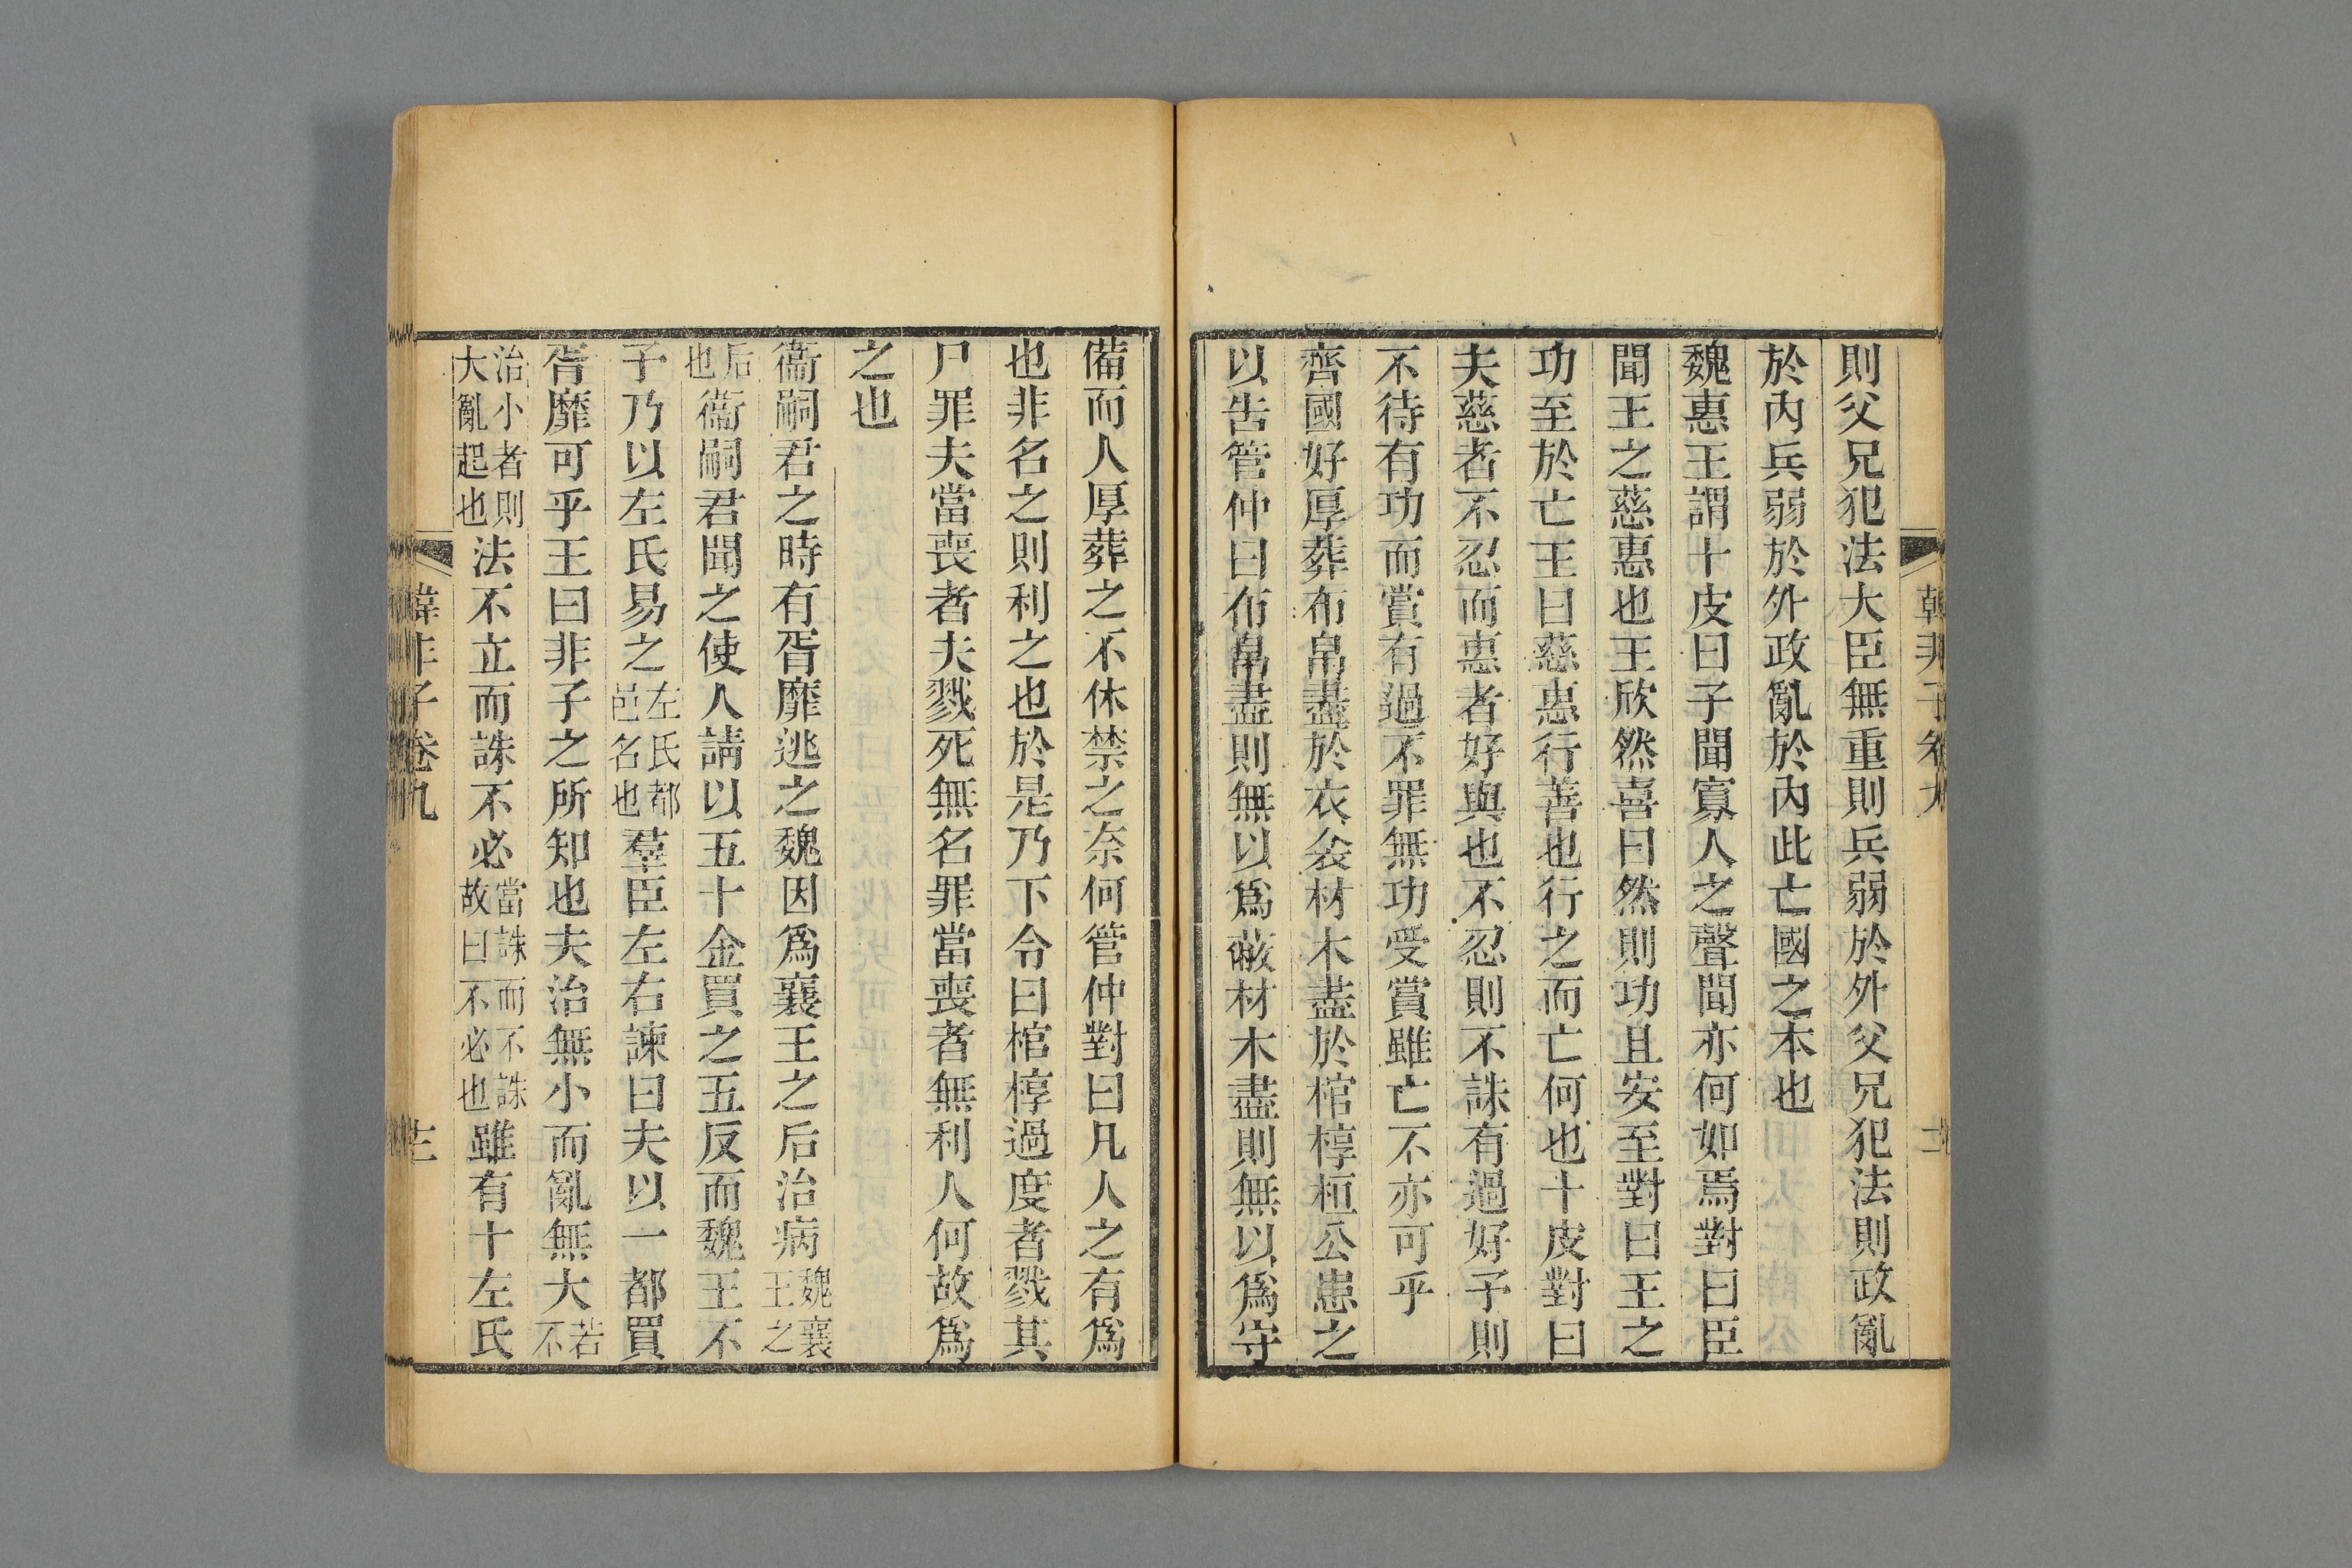 則父兄犯法大臣無重則兵弱於外父兄犯法則政亂
於內兵弱於外政亂於內此亡國之本也
魏惠王謂卜皮曰子聞寡人之聲聞亦何如焉對曰臣
聞王之慈惠也王欣然喜曰然則功且安至對曰王之
功至於亡王曰慈惠行善也行之而亡何也卜皮對曰
夫慈者不忍而惠者好與也不忍則不誅有過好予則
不待有功而賞有過不罪無功受賞雖亡不亦可乎
齊國好厚葬布帛盡於衣衾材木盡於棺椁桓公患之
以告管仲曰布帛盡則無以爲蔽材木盡則無以爲守
備而人厚葬之不休禁之奈何管仲對曰凡人之有爲
也非名之則利之也於是乃下令曰棺椁過度者戮其
尸罪夫當喪者夫戮死無名罪當喪者無利人何故爲
之也
衞嗣君之時有胥靡逃之魏因爲襄王之后治病魏襄王之
后也衞嗣君聞之使人請以五十金買之五反而魏王不
予乃以左氏易之左氏都邑名也羣臣左右諫曰夫以一都買
胥靡可乎王曰非子之所知也夫治無小而亂無大若不
治小者則大亂起也法不立而誅不必當誅而不誅故曰不必也雖有十左氏
韓非子卷九